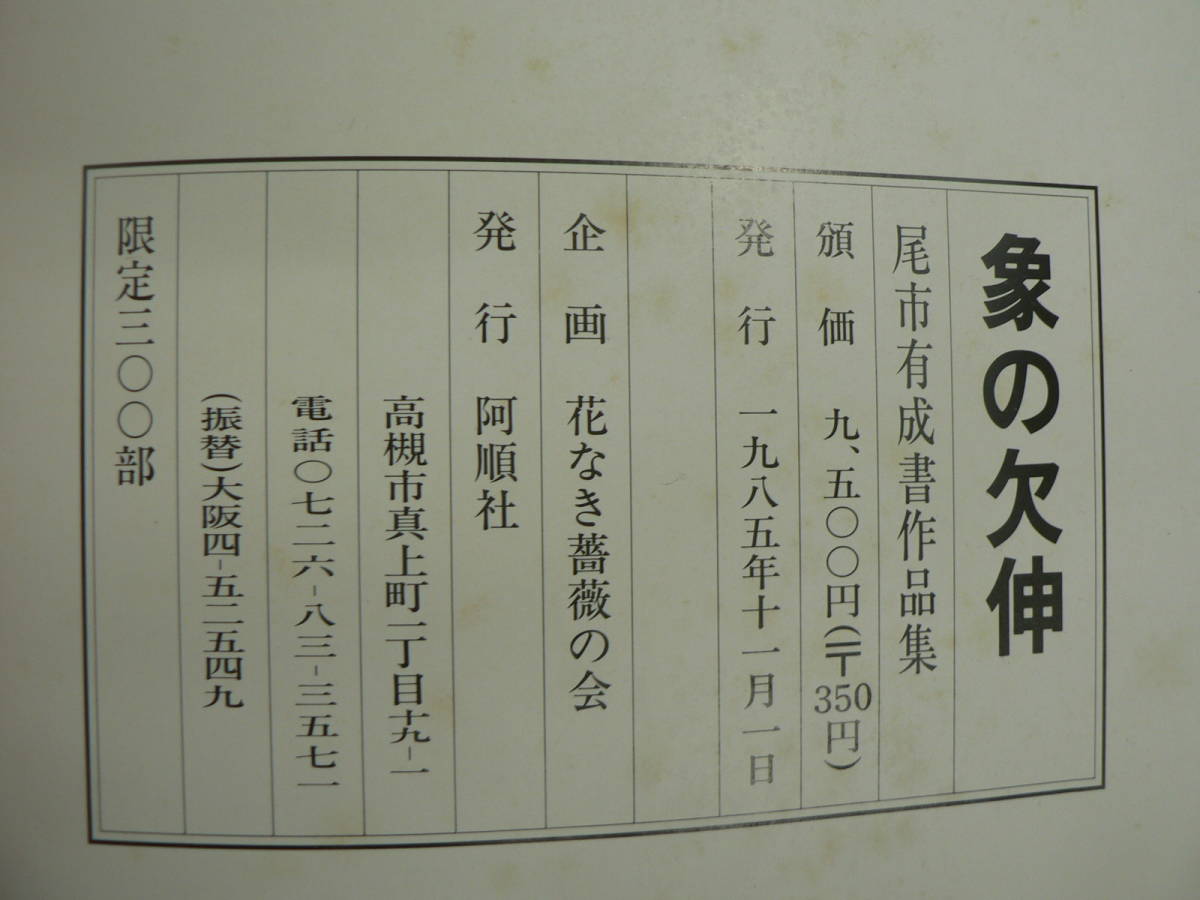 象の欠伸
尾市有成書作品集
頒価 九、五〇〇円(〒350円)
発行 一九八五年十一月一日
企画 花なき薔薇の会
発行 阿順社
高槻市真上町一丁目十九-一
電話〇七二六-八三-三五七一
(振替)大阪四-五二五四九
限定三〇〇部